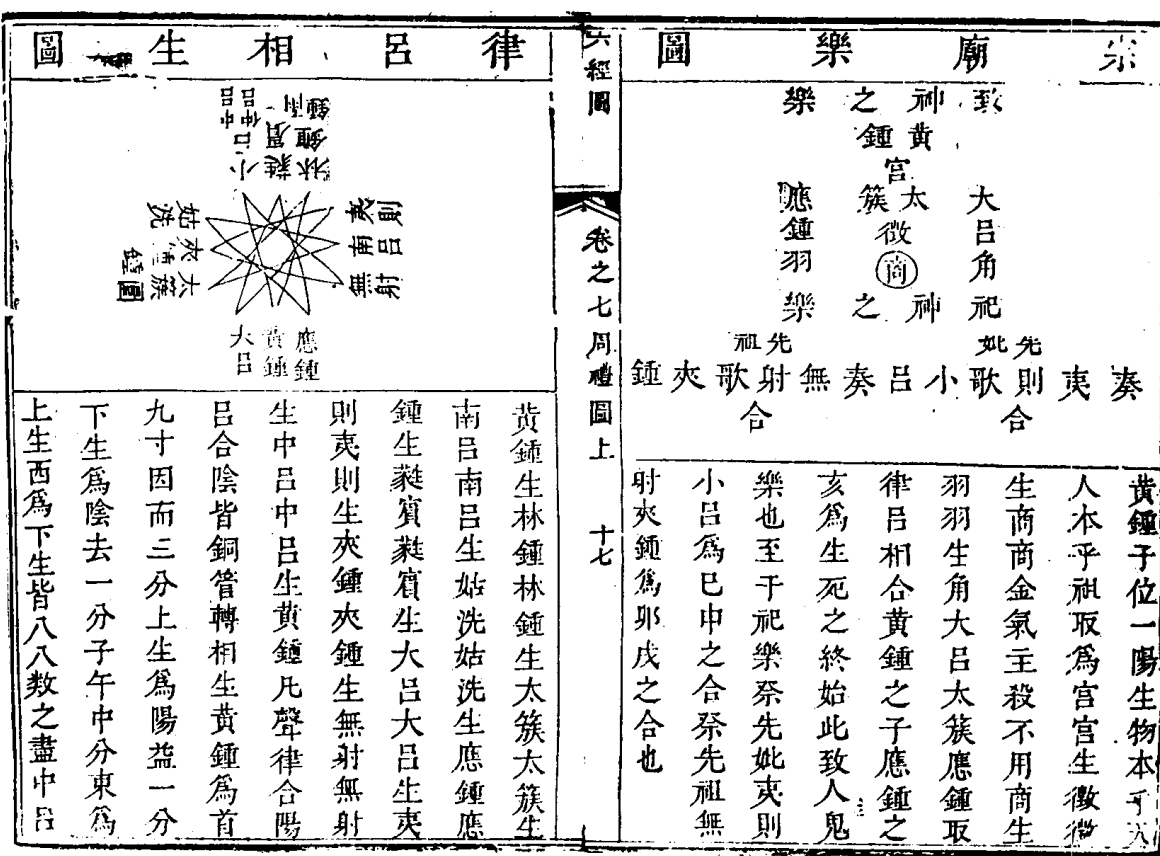 宗廟樂圖
致神之樂
黃鍾
宮
大呂角
太簇
徵
商
應鍾羽
祀神之樂
先妣
先祖
奏夷則歌小呂奏無射歌夾鍾
合
合
黃鍾子位一陽生物本乎天
人本乎祖取爲宮宮生徵徵
生商商金氣主殺不用商生
羽羽生角大呂太簇應鍾取
律呂相合黃鍾之子應鍾之
亥爲生死之終始此致人鬼
樂也至于祀樂祭先妣夷則
小呂爲巳申之合祭先祖無
射夾鍾爲卯戌之合也
六經圖
卷之七周禮圖上
十七
律呂相生圖
應鍾
黃鍾
大呂
太簇
夾鍾
姑洗
小呂
中呂
仲呂
蕤賓
林鍾
夷則
南呂
無射
黃鍾生林鍾林鍾生太簇太簇生
南呂南呂生姑洗姑洗生應鍾應
鍾生蕤賓蕤賓生大呂大呂生夷
則夷則生夾鍾夾鍾生無射無射
生中呂中呂生黃鍾凡聲律合陽
呂合陰皆銅管轉相生黃鍾爲首
九寸因而三分上生爲陽益一分
下生爲陰去一分子午中分東爲
上生西爲下生皆八八数之盡中呂